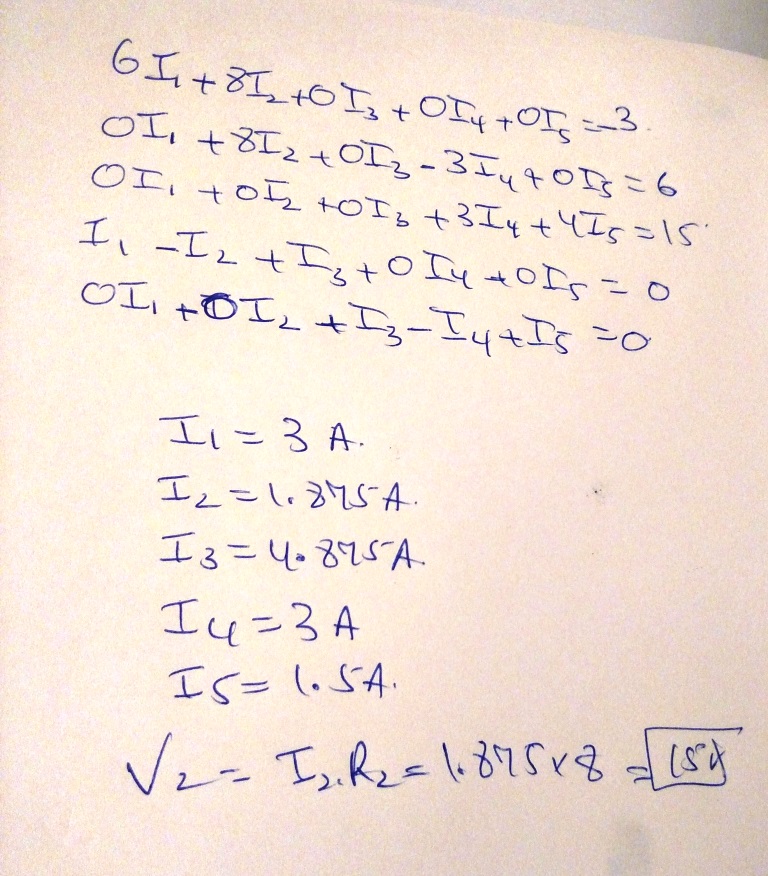 6I₁+8I₂+0I₃+0I₄+0I₅=-3.
0I₁+8I₂+0I₃-3I₄+0I₅=6
0I₁+0I₂+0I₃+3I₄+4I₅=15
I₁-I₂+I₃+0I₄+0I₅=0
0I₁+0I₂+I₃-I₄+I₅=0
I₁=3A.
I₂=1.875A.
I₃=4.875A.
I₄=3A
I₅=1.5A.
V₂=I₂.R₂=1.875×8=15V